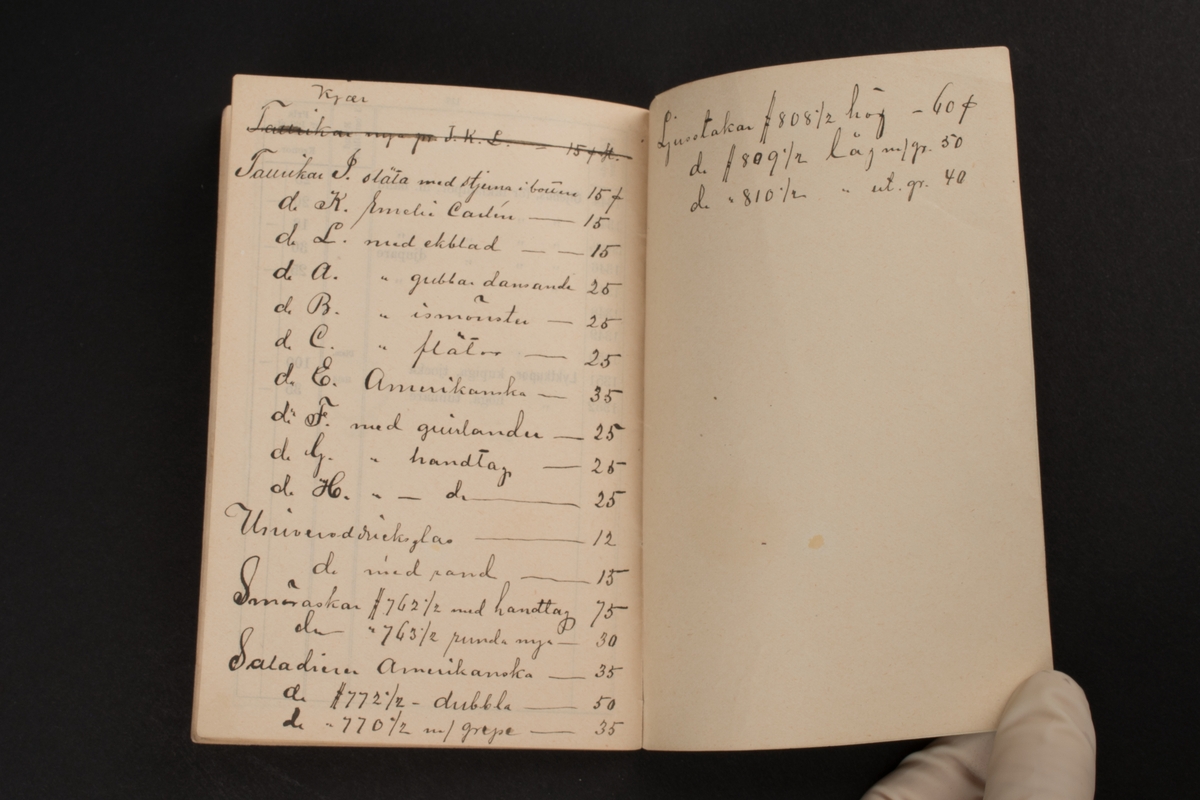 Kjær
Tallrikar nya pr J. K. L. — 15 ¢ st.
Tallrikar J. släta med stjerna i botten 15 ¢
do K. Emelie Carlén — 15
do L. med ekblad — — 15
do A. " gubbar dansande 25
do B. " ismönster — 25
do C. " flätor — 25
do E. Amerikanska — 35
do F. med guirlander — 25
do G. " handtag — 25
do H. " — do — 25
Universdricksglas — 12
do med rand — 15
Smöraskar # 762 1/2 med handtag 75
do " 763 1/2 runda nya — 30
Saladierer Amerikanska — 35
do # 772 1/2 - dubbla — 50
do " 770 1/2 m/ grepe — 35
Ljusstakar # 808 1/2 hög — 60 ¢
do # 809 1/2 låg m/ gr. 50
do " 810 1/2 " ut. gr. 40